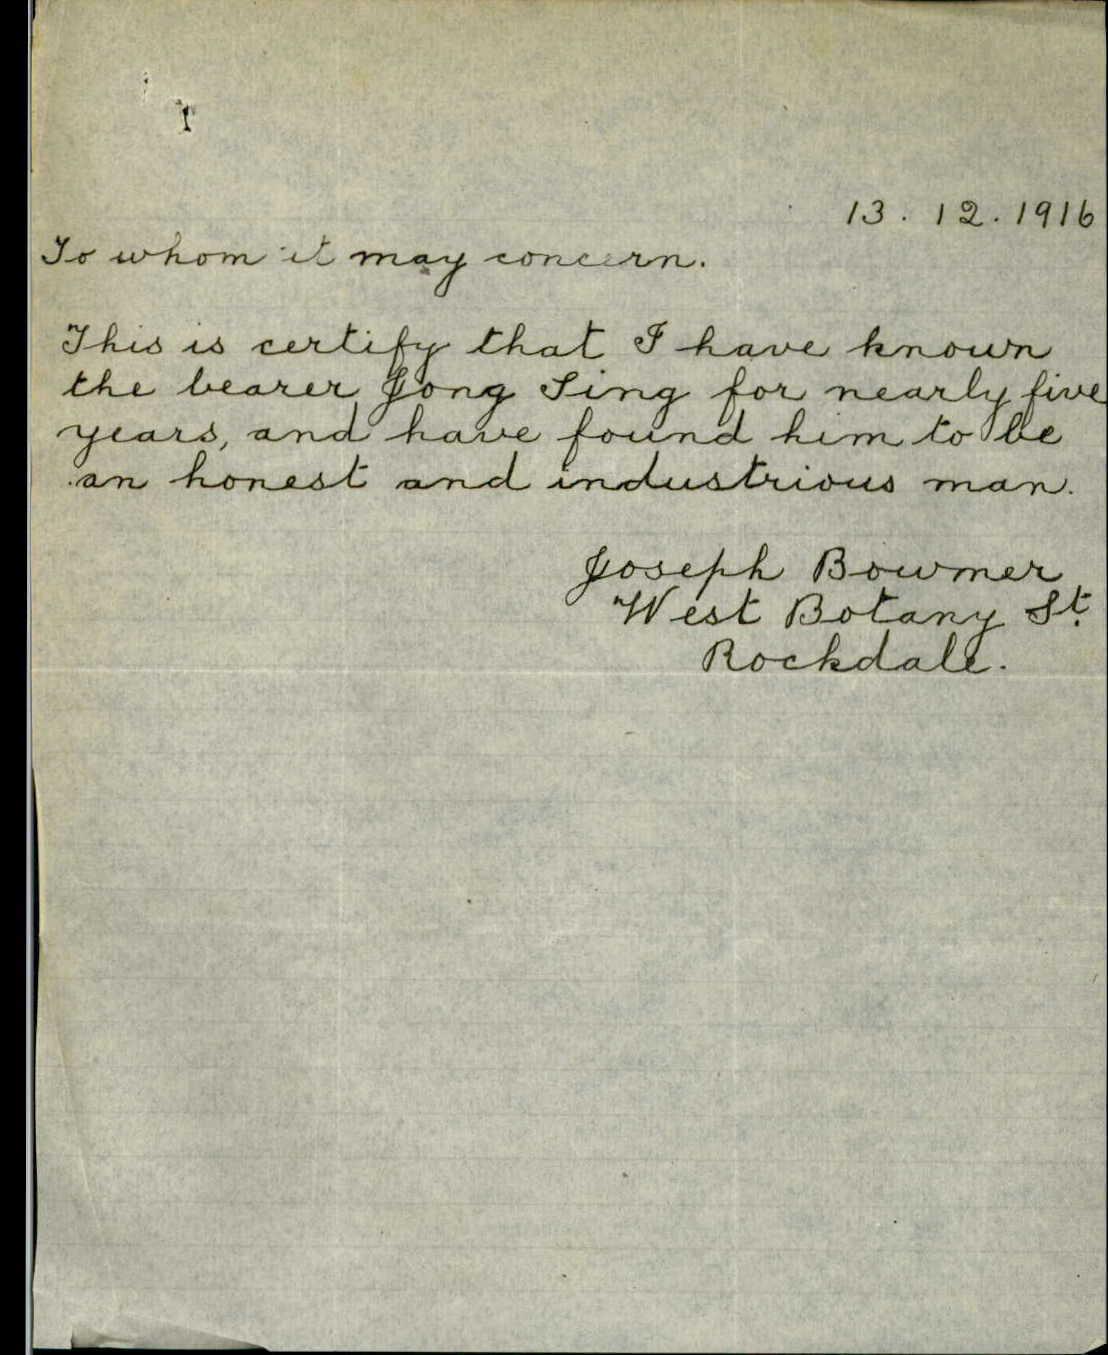 13. 12. 1916
To whom it may concern.
This is certify that I have known
the bearer Jong Sing for nearly five
years, and have found him to be
an honest and industrious man.
Joseph Bowmer
West Botany St.
Rockdale.